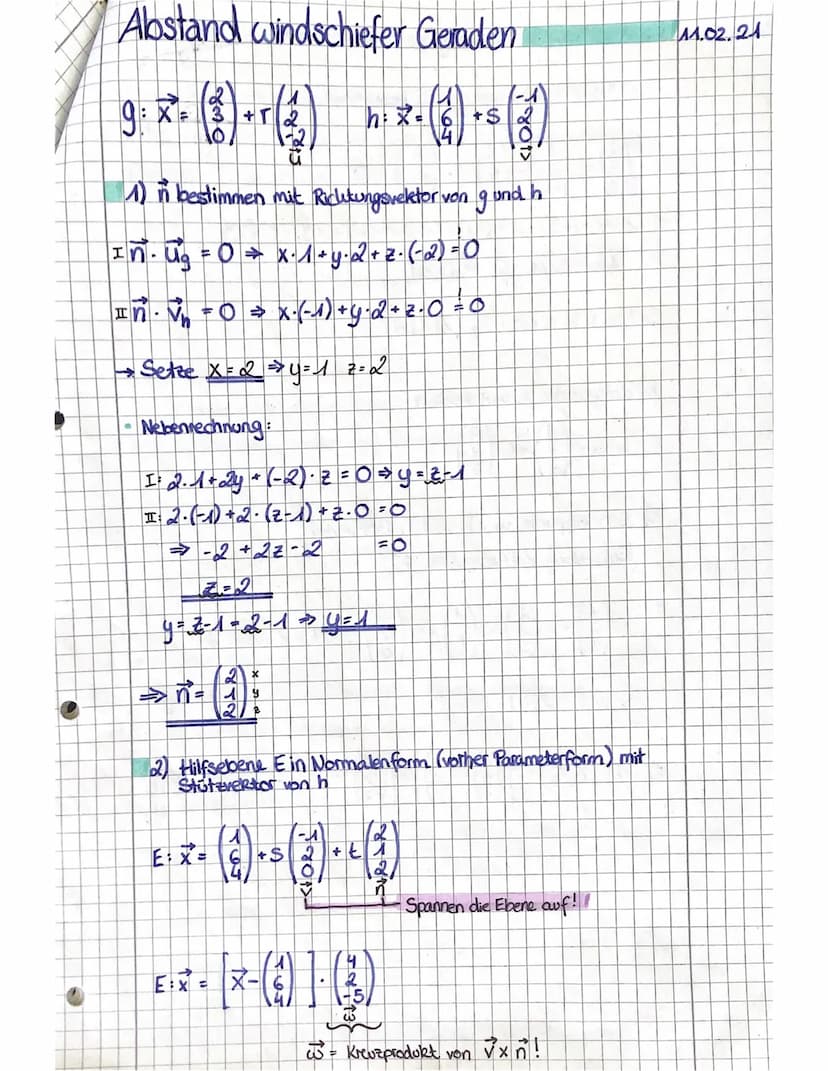 Abstand windschiefer Geraden 11.02.21
g: x⃗ = (2 3 0) + r (1 2 -2) h: x⃗ = (1 6 4) + s (-1 2 0)
u⃗ v⃗
1) n⃗ bestimmen mit Richtungsvektor von g und h
I n⃗ · u⃗g = 0 ⇒ x·1+y·2+z·(-2) =! 0
II n⃗ · v⃗h = 0 ⇒ x·(-1)+y·2+z·0 =! 0
→ Setze x=2 ⇒ y=1 z=2
• Nebenrechnung:
I: 2·1+2y+(-2)·z = 0 ⇒ y=z-1
II: 2·(-1)+2·(z-1)+z·0 =0
⇒ -2+2z-2 =0
z=2
y=z-1=2-1 ⇒ y=1
⇒ n⃗ = (2 1 2) x y z
2) Hilfsebene E in Normalenform (vorher Parameterform) mit
Stützvektor von h
E: x⃗ = (1 6 4) + s (-1 2 0) + t (2 1 2)
v⃗ n⃗
Spannen die Ebene auf!
E: x⃗ = [x⃗ - (1 6 4)] · (4 2 -5)
w⃗
w⃗ = Kreuzprodukt von v⃗ x n⃗!